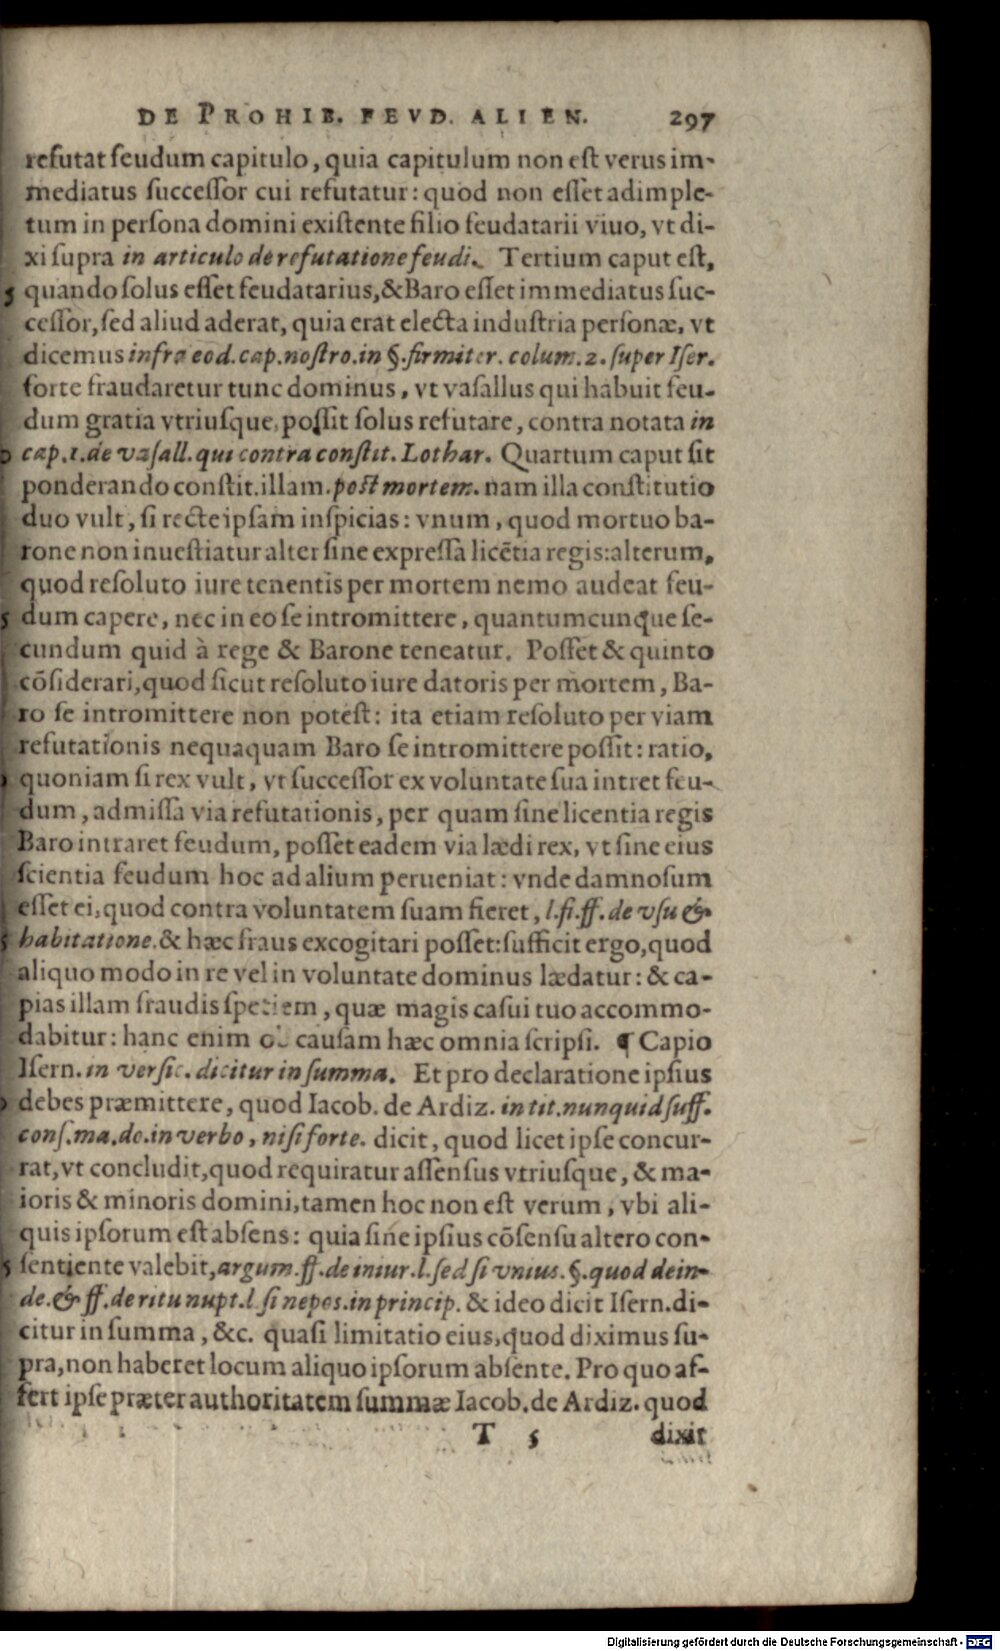 DE PROHIB. FEVD. ALIEN. 297
refutat feudum capitulo, quia capitulum non est verus im-
mediatus successor cui refutatur: quod non esset adimple-
tum in persona domini existente filio feudatarii viuo, vt di-
xi supra in articulo de refutatione feudi. Tertium caput est,
5 quando solus esset feudatarius, & Baro esset immediatus suc-
cessor, sed aliud aderat, quia erat electa industria personæ, vt
dicemus infra eod. cap. nostro. in §. firmiter. colum. 2. super Iser.
forte fraudaretur tunc dominus, vt vasallus qui habuit feu-
dum gratia vtriusque, possit solus refutare, contra notata in
cap. 1. de vasall. qui contra constit. Lothar. Quartum caput sit
ponderando constit. illam. post mortem. nam illa constitutio
duo vult, si recte ipsam inspicias: vnum, quod mortuo ba-
rone non inuestiatur alter sine expressa licētia regis: alterum,
quod resoluto iure tenentis per mortem nemo audeat feu-
5 dum capere, nec in eo se intromittere, quantumcunque se-
cundum quid à rege & Barone teneatur. Posset & quinto
cōsiderari, quod sicut resoluto iure datoris per mortem, Ba-
ro se intromittere non potest: ita etiam resoluto per viam
refutationis nequaquam Baro se intromittere possit: ratio,
quoniam si rex vult, vt successor ex voluntate sua intret feu-
dum, admissa via refutationis, per quam sine licentia regis
Baro intraret feudum, posset eadem via lædi rex, vt sine eius
scientia feudum hoc ad alium perueniat: vnde damnosum
esset ei, quod contra voluntatem suam fieret, l. fi. ff. de vsu &
5 habitatione. & hæc fraus excogitari posset: sufficit ergo, quod
aliquo modo in re vel in voluntate dominus lædatur: & ca-
pias illam fraudis speciem, quæ magis casui tuo accommo-
dabitur: hanc enim ob causam hæc omnia scripsi. ¶ Capio
Isern. in versic. dicitur in summa. Et pro declaratione ipsius
debes præmittere, quod Iacob. de Ardiz. in tit. nunquid suff.
cons. ma. do. in verbo, nisi forte. dicit, quod licet ipse concur-
rat, vt concludit, quod requiratur assensus vtriusque, & ma-
ioris & minoris domini, tamen hoc non est verum, vbi ali-
quis ipsorum est absens: quia sine ipsius cōsensu altero con-
5 sentiente valebit, argum. ff. de iniur. l. sed si vnius. §. quod dein-
de. & ff. de ritu nupt. l. si nepos. in princip. & ideo dicit Isern. di-
citur in summa, &c. quasi limitatio eius, quod diximus su-
pra, non haberet locum aliquo ipsorum absente. Pro quo af-
fert ipse præter authoritatem summæ Iacob. de Ardiz. quod
T 5 dixit
Digitalisierung gefördert durch die Deutsche Forschungsgemeinschaft - DFG